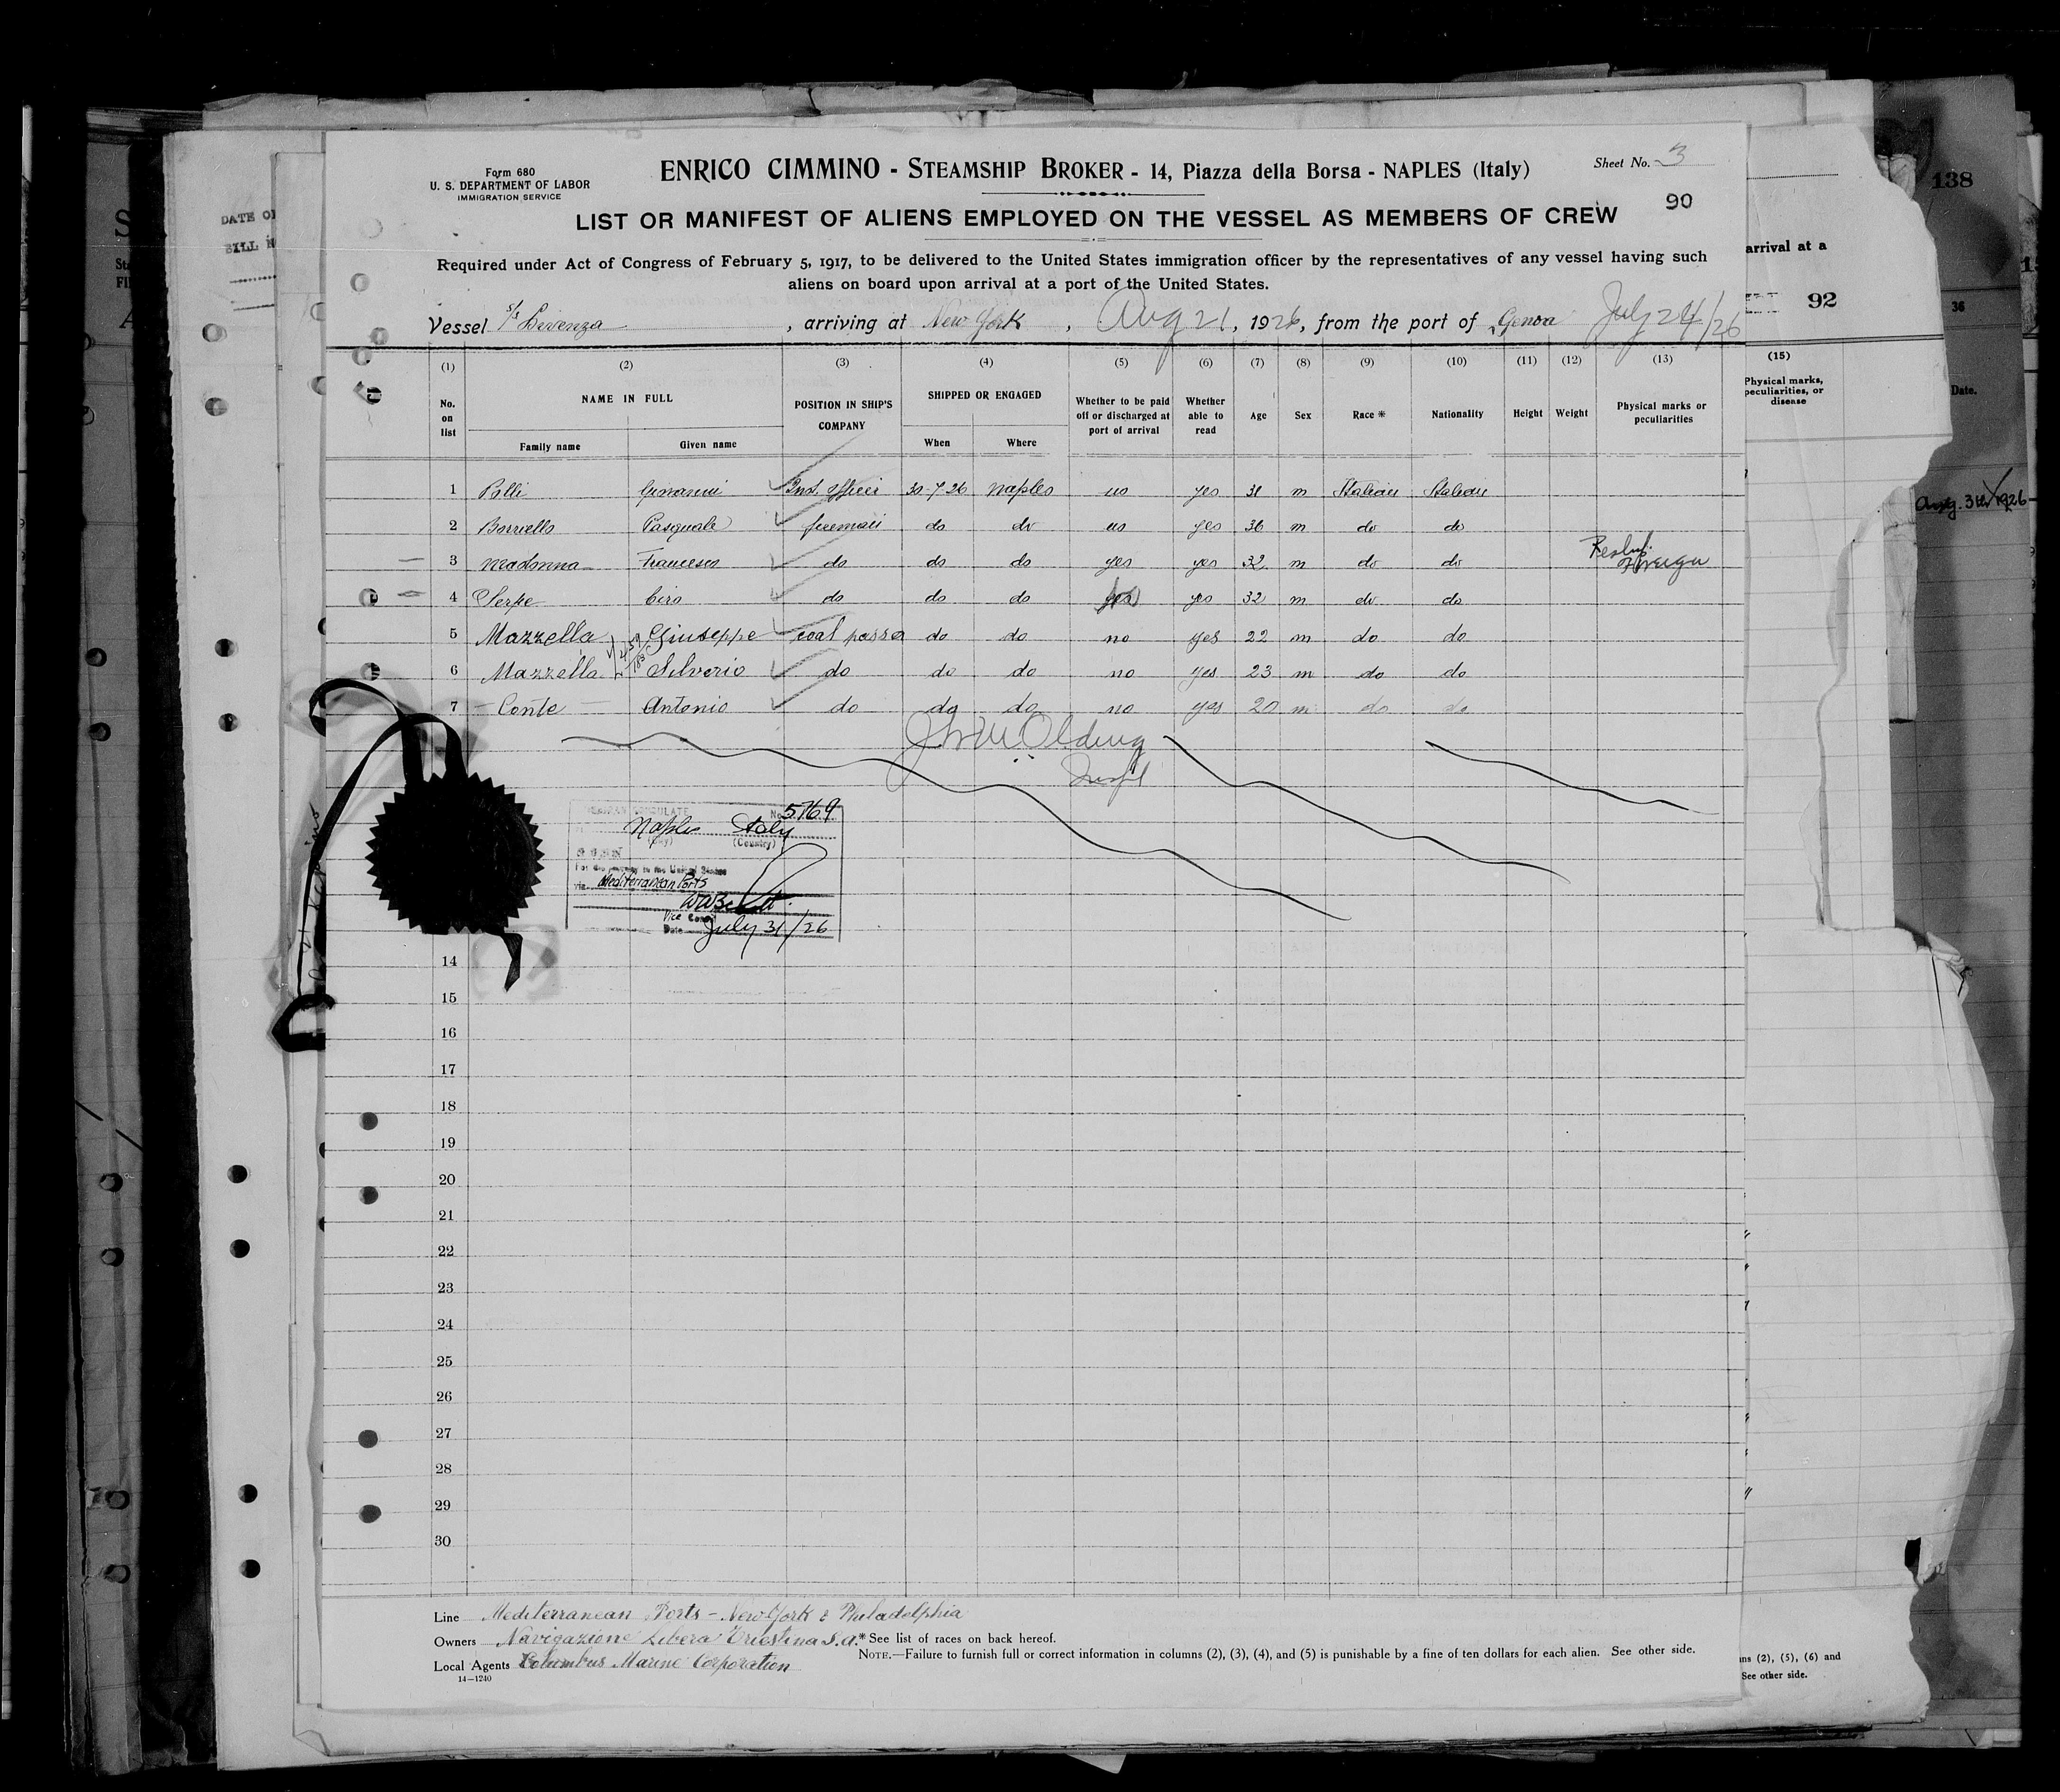 Form 680
U. S. DEPARTMENT OF LABOR
IMMIGRATION SERVICE
ENRICO CIMMINO - STEAMSHIP BROKER - 14, Piazza della Borsa - NAPLES (Italy)
Sheet No. 3
90
LIST OR MANIFEST OF ALIENS EMPLOYED ON THE VESSEL AS MEMBERS OF CREW
Required under Act of Congress of February 5, 1917, to be delivered to the United States immigration officer by the representatives of any vessel having such
aliens on board upon arrival at a port of the United States.
Vessel s/s Livenza, arriving at New York, Aug 21, 1926, from the port of Genoa July 24/26
(1) (2) (3) (4) (5) (6) (7) (8) (9) (10) (11) (12) (13)
No. on list
NAME IN FULL
Family name Given name
POSITION IN SHIP'S COMPANY
SHIPPED OR ENGAGED
When Where
Whether to be paid off or discharged at port of arrival
Whether able to read
Age Sex Race * Nationality Height Weight
Physical marks or peculiarities
1 Polli Giovanni 2nd. officer 30-7-26 Naples no yes 31 m Italian Italian
2 Borriello Pasquale fireman do do no yes 36 m do do
3 Madonna Francesco do do do yes yes 32 m do do
4 Serpe Ciro do do do yes yes 32 m do do
5 Mazzella Giuseppe coal passer do do no yes 22 m do do
6 Mazzella Silverio do do do no yes 23 m do do
7 Conte Antonio do do do no yes 20 m do do
No. 5769
Naples Italy
(City) (Country)
For the journey to the United States
via Mediterranean Ports
Vice Consul
Date July 31/26
14
15
16
17
18
19
20
21
22
23
24
25
26
27
28
29
30
Line Mediterranean Ports - New York & Philadelphia
Owners Navigazione Libera Triestina S.A.
* See list of races on back hereof.
Local Agents Columbus Marine Corporation
NOTE.—Failure to furnish full or correct information in columns (2), (3), (4), and (5) is punishable by a fine of ten dollars for each alien. See other side.
14—1240
138
arrival at a
92
36
(15)
Physical marks, peculiarities, or disease
Date.
ns (2), (5), (6) and
See other side.
DATE OF
BILL